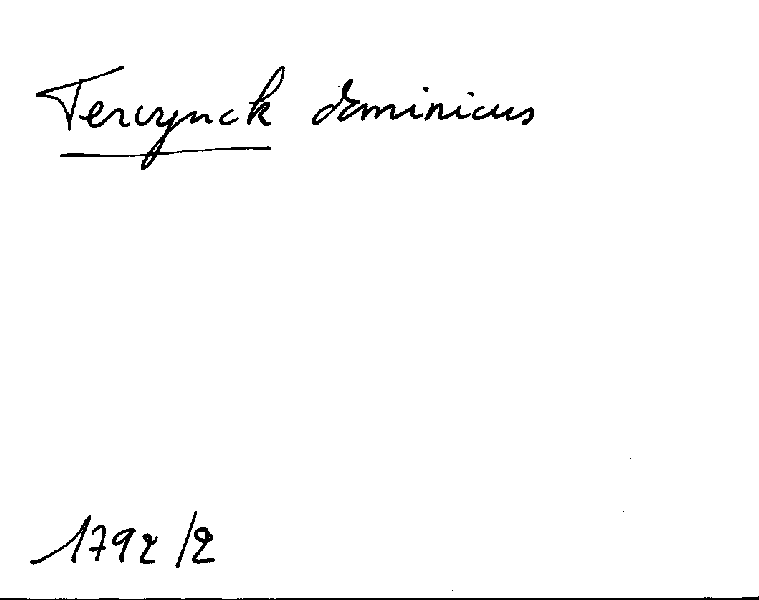 Tervynck dominicus
1792/2